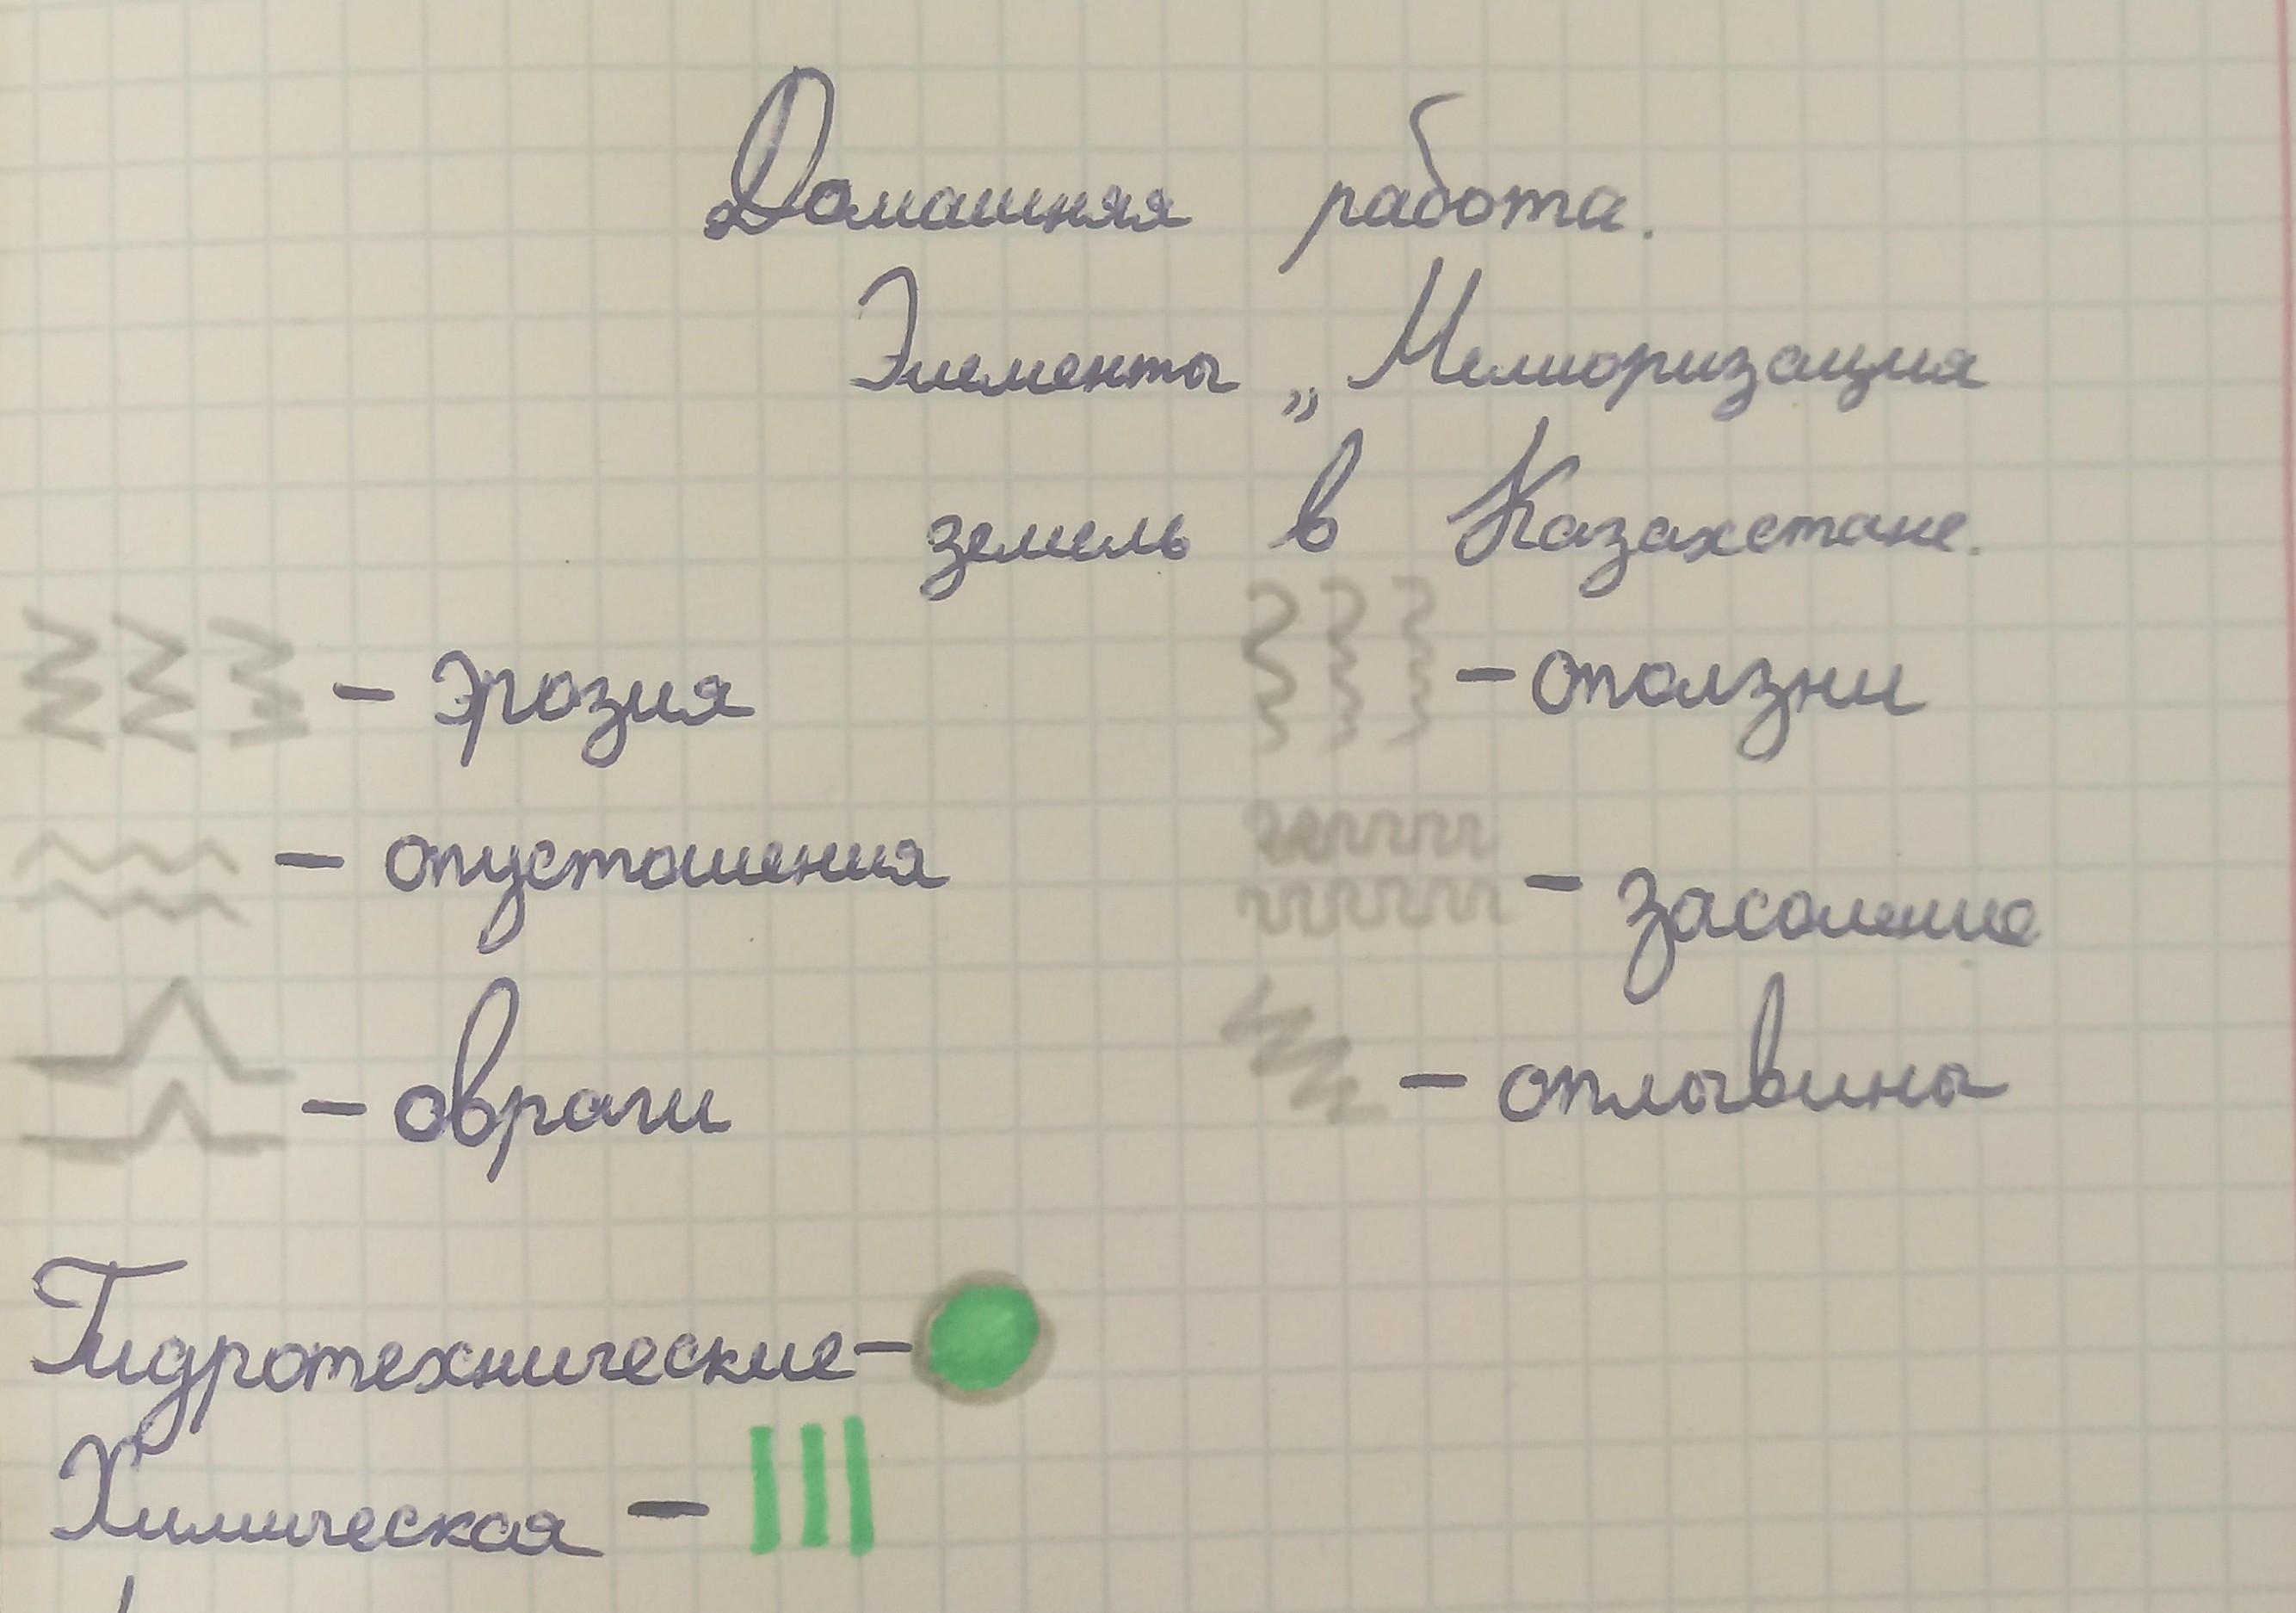 Домашняя работа.
Элементы „Мелиоризация
земель в Казахстане.
– эрозия
– оползни
– опустошения
– засоление
– овраги
– оплывины
Гидротехнические –
Химическая –